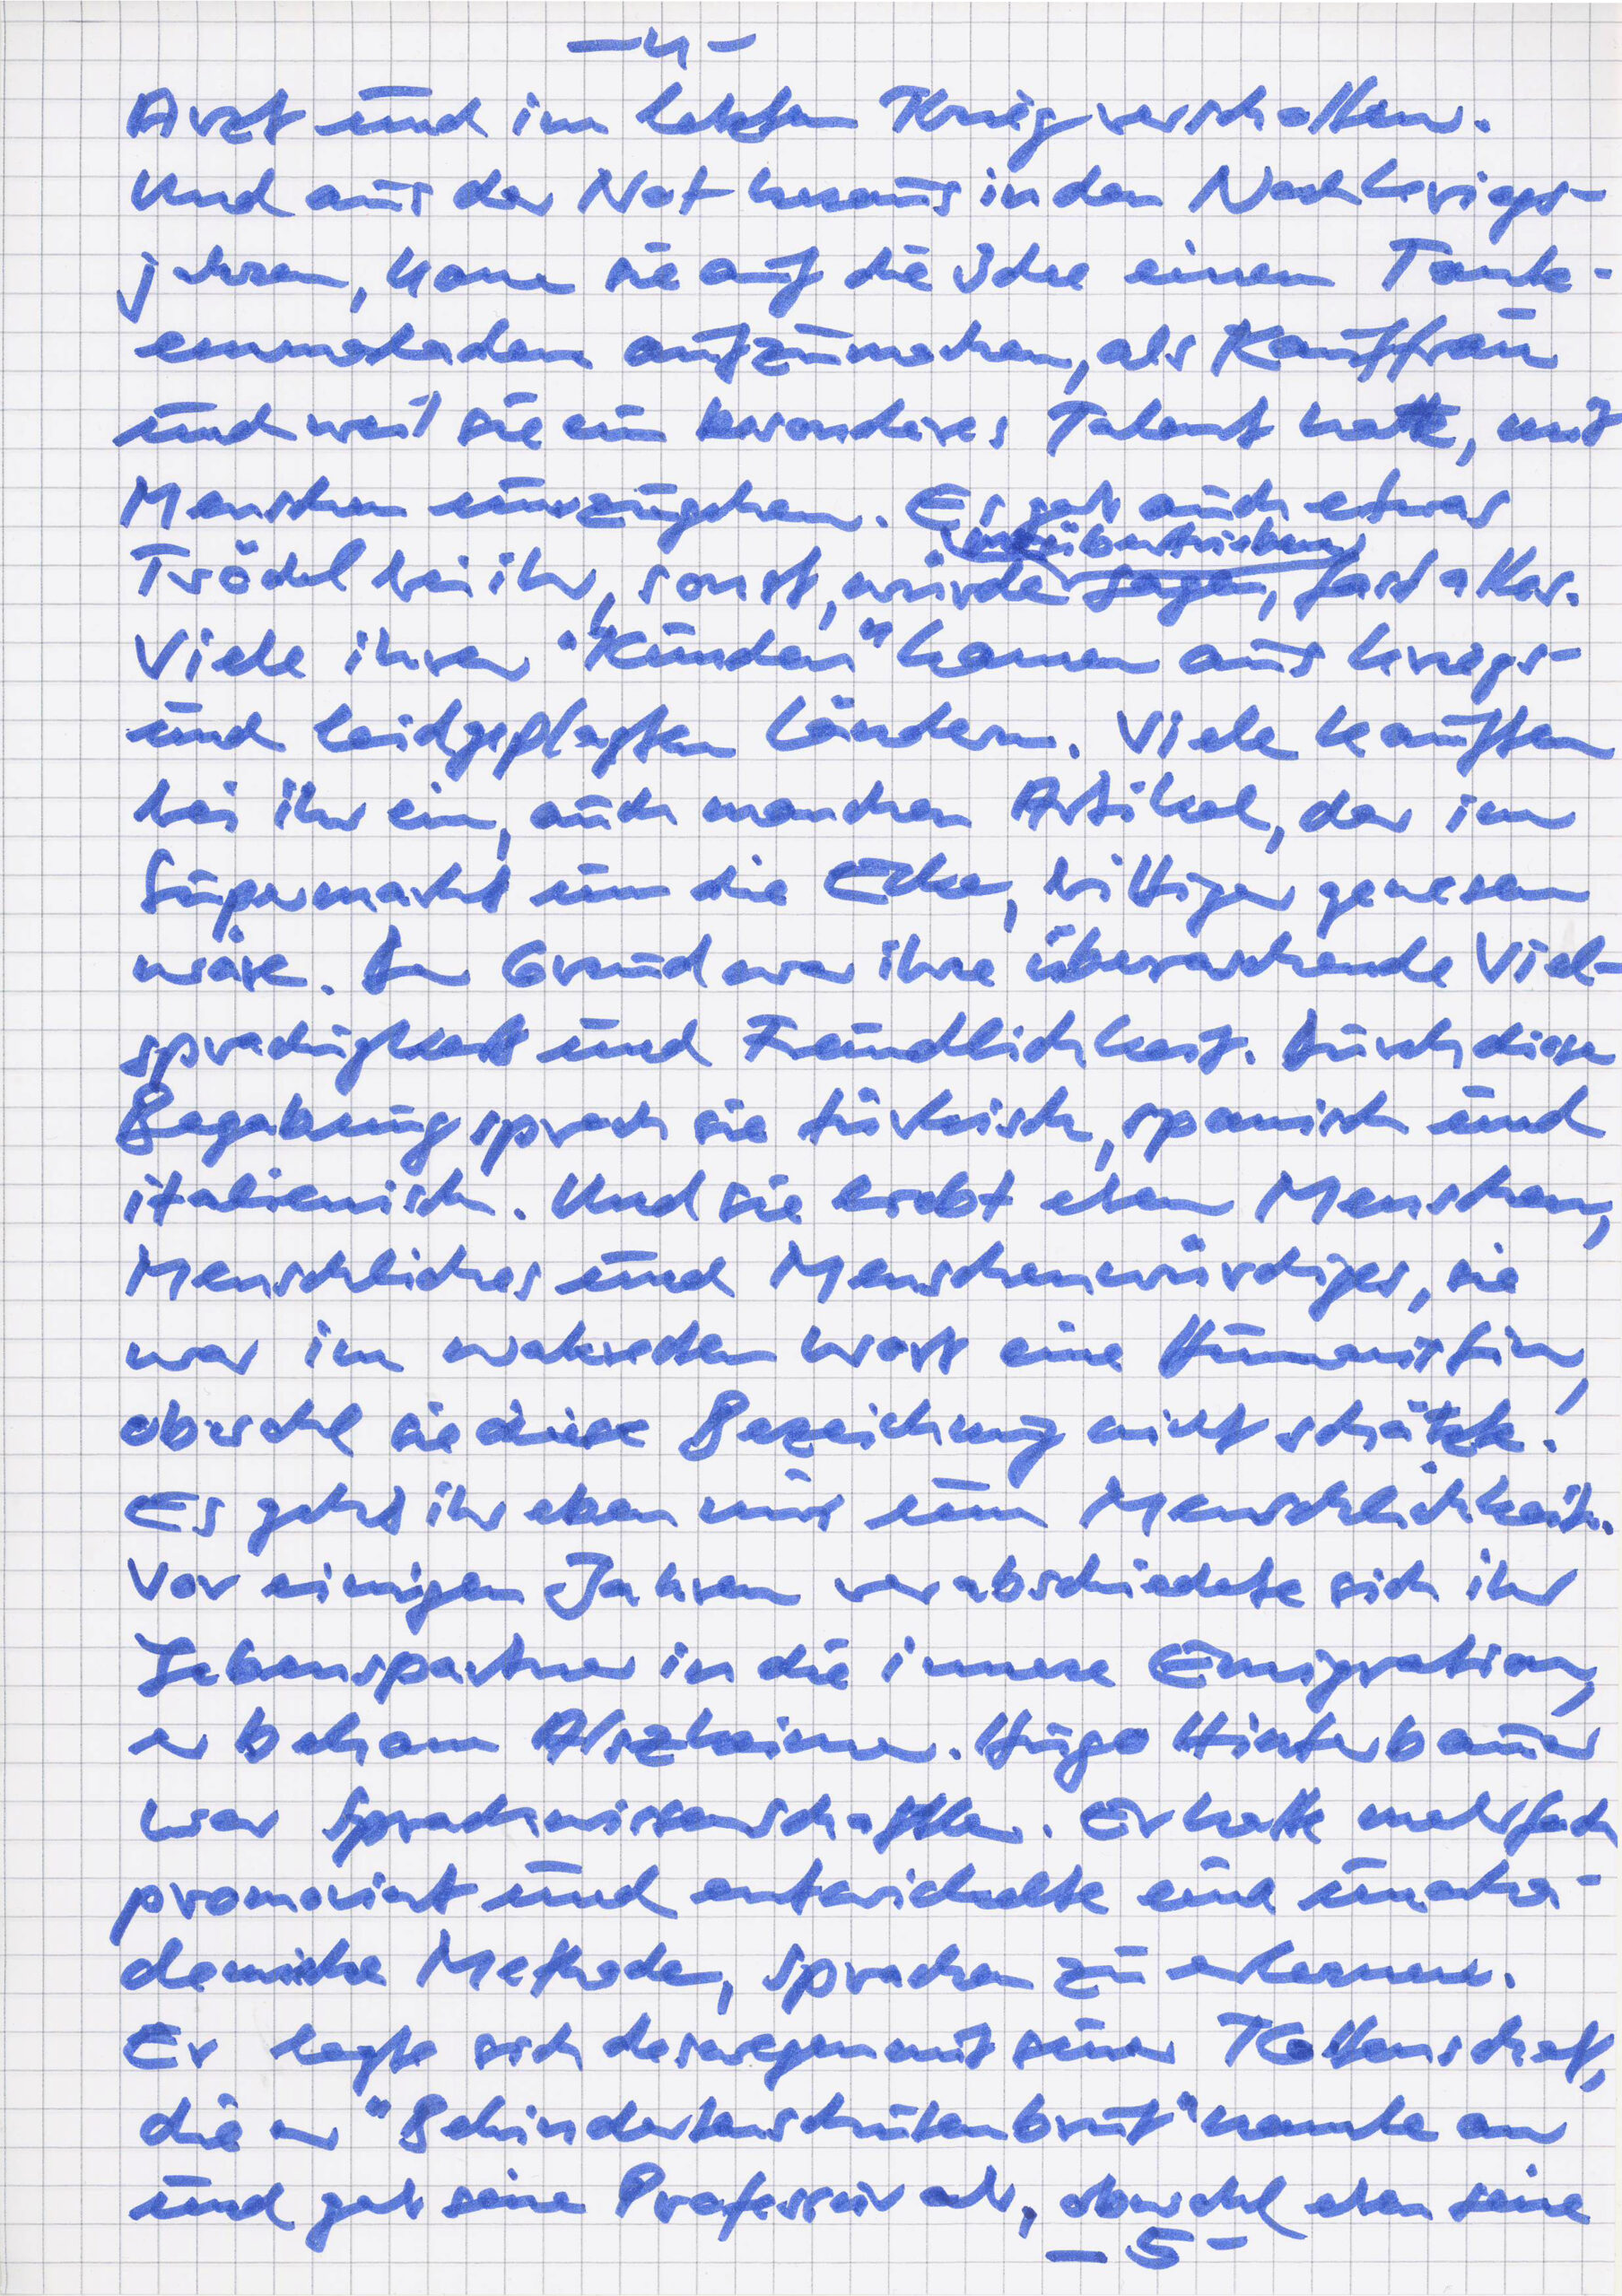 -4-
Arzt und im letzten Krieg verschollen.
Und aus der Not heraus in den Nachkriegs-
jahren, kam sie auf die Idee einen Tante-
emmaladen aufzumachen, als Kauffrau
und weil sie ein besonderes Talent hatte, mit
Menschen umzugehen. Es gab auch etwas
übertrieben
Trödel bei ihr, sonst, würde sagen, fast alles.
Viele ihrer "Kunden" kamen aus kriegs-
und leidgeplagten Ländern. Viele kauften
bei ihr ein, auch manchen Artikel, der im
Supermarkt um die Ecke, billiger gewesen
wäre. Der Grund war ihre überraschende Viel-
sprachigkeit und Freundlichkeit. Durch diese
Begabung sprach sie türkisch, spanisch und
italienisch. Und sie liebt eben Menschen,
Menschliches und Menschenwürdiges, sie
war im wahrsten Wort eine Humanistin,
obwohl sie diese Bezeichung nicht schätzte.
Es geht ihr eben nur um Menschlichkeit.
Vor einigen Jahren verabschiedete sich ihr
Lebenspartner in die innere Emigration,
er bekam Alszheimer. Hugo Hinterbauer
war Sprachwissenschaftler. Er hatte mehrfach
promoviert und entwickelte eine unaka-
demische Methode, Sprachen zu erlernen.
Er legte sich deswegen mit seiner Kollenschaft,
die er "Behindertenschulenbrut" nannte an
und gab seine Professur ab, obwohl eben seine
-5-